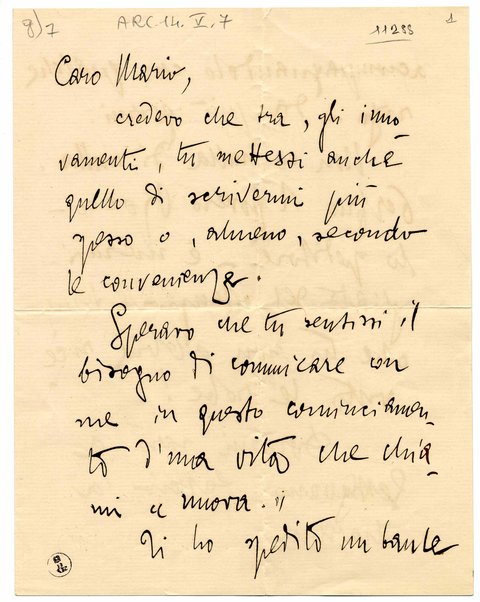 9)7 ARC.14.V.7 11288 1
Caro Mario,
credevo che tra, gli inno
vamenti, tu mettessi anche
quello di scrivermi più
spesso o, almeno, secondo
le convenienze.
Speravo che tu sentissi il
bisogno di comunicare con
me in questo cominciamen-
to d'una vita che chia
mi "nuova."
Ti ho spedito un baule